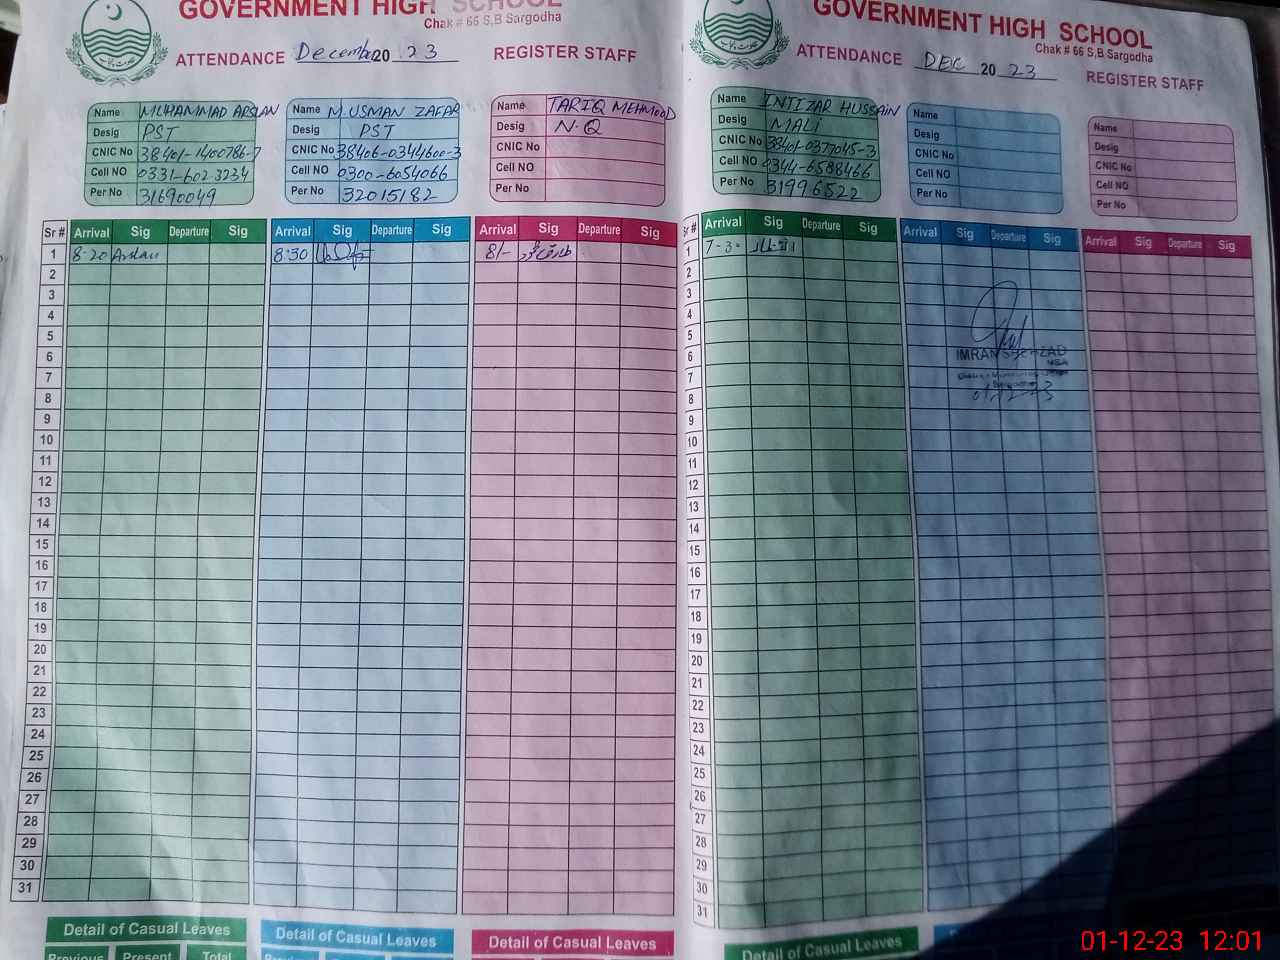 GOVERNMENT HIGH SCHOOL
Chak # 66 S,B Sargodha
ATTENDANCE December 2023 REGISTER STAFF
Name MUHAMMAD ARSLAN
Desig PST
CNIC No 38401-1400786-7
Cell NO 0331-602 3234
Per No 31690049
Name M USMAN ZAFAR
Desig PST
CNIC No 38406-0344600-3
Cell NO 0300-6054066
Per No 32015182
Name TARIQ MEHMOOD
Desig N-Q
CNIC No
Cell NO
Per No
Sr # Arrival Sig Departure Sig Arrival Sig Departure Sig Arrival Sig Departure Sig
1 8-20 Arslan 8:30 8/-
2
3
4
5
6
7
8
9
10
11
12
13
14
15
16
17
18
19
20
21
22
23
24
25
26
27
28
29
30
31
Detail of Casual Leaves Detail of Casual Leaves Detail of Casual Leaves
Previous Present Total
GOVERNMENT HIGH SCHOOL
Chak # 66 S,B Sargodha
ATTENDANCE DEC 2023 REGISTER STAFF
Name INTIZAR HUSSAIN
Desig MALI
CNIC No 38401-0377045-3
Cell NO 0344-6588466
Per No 31996522
Name
Desig
CNIC No
Cell NO
Per No
Name
Desig
CNIC No
Cell NO
Per No
Sr # Arrival Sig Departure Sig Arrival Sig Departure Sig Arrival Sig Departure Sig
1 7-30 انتظار
2
3
4
5
6
7
8
9
10
11
12
13
14
15
16
17
18
19
20
21
22
23
24
25
26
27
28
29
30
31
IMRAN SHEHZAD
Detail of Casual Leaves
01-12-23 12:01